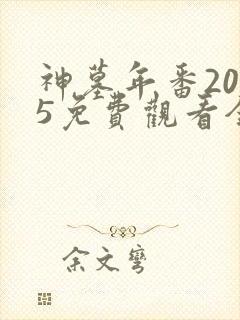 神墓年番20
5免費觀看全
余文彎